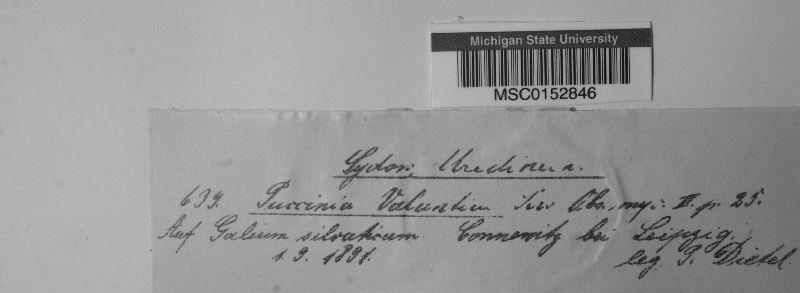 Michigan State University
MSC0152846
Sydow, Uredineen.
639. Puccinia Valantiae Pers. Obs. myc. II. p. 25.
Auf Galium silvaticum. Connewitz bei Leipzig.
1. 9. 1891. leg. P. Dietel.